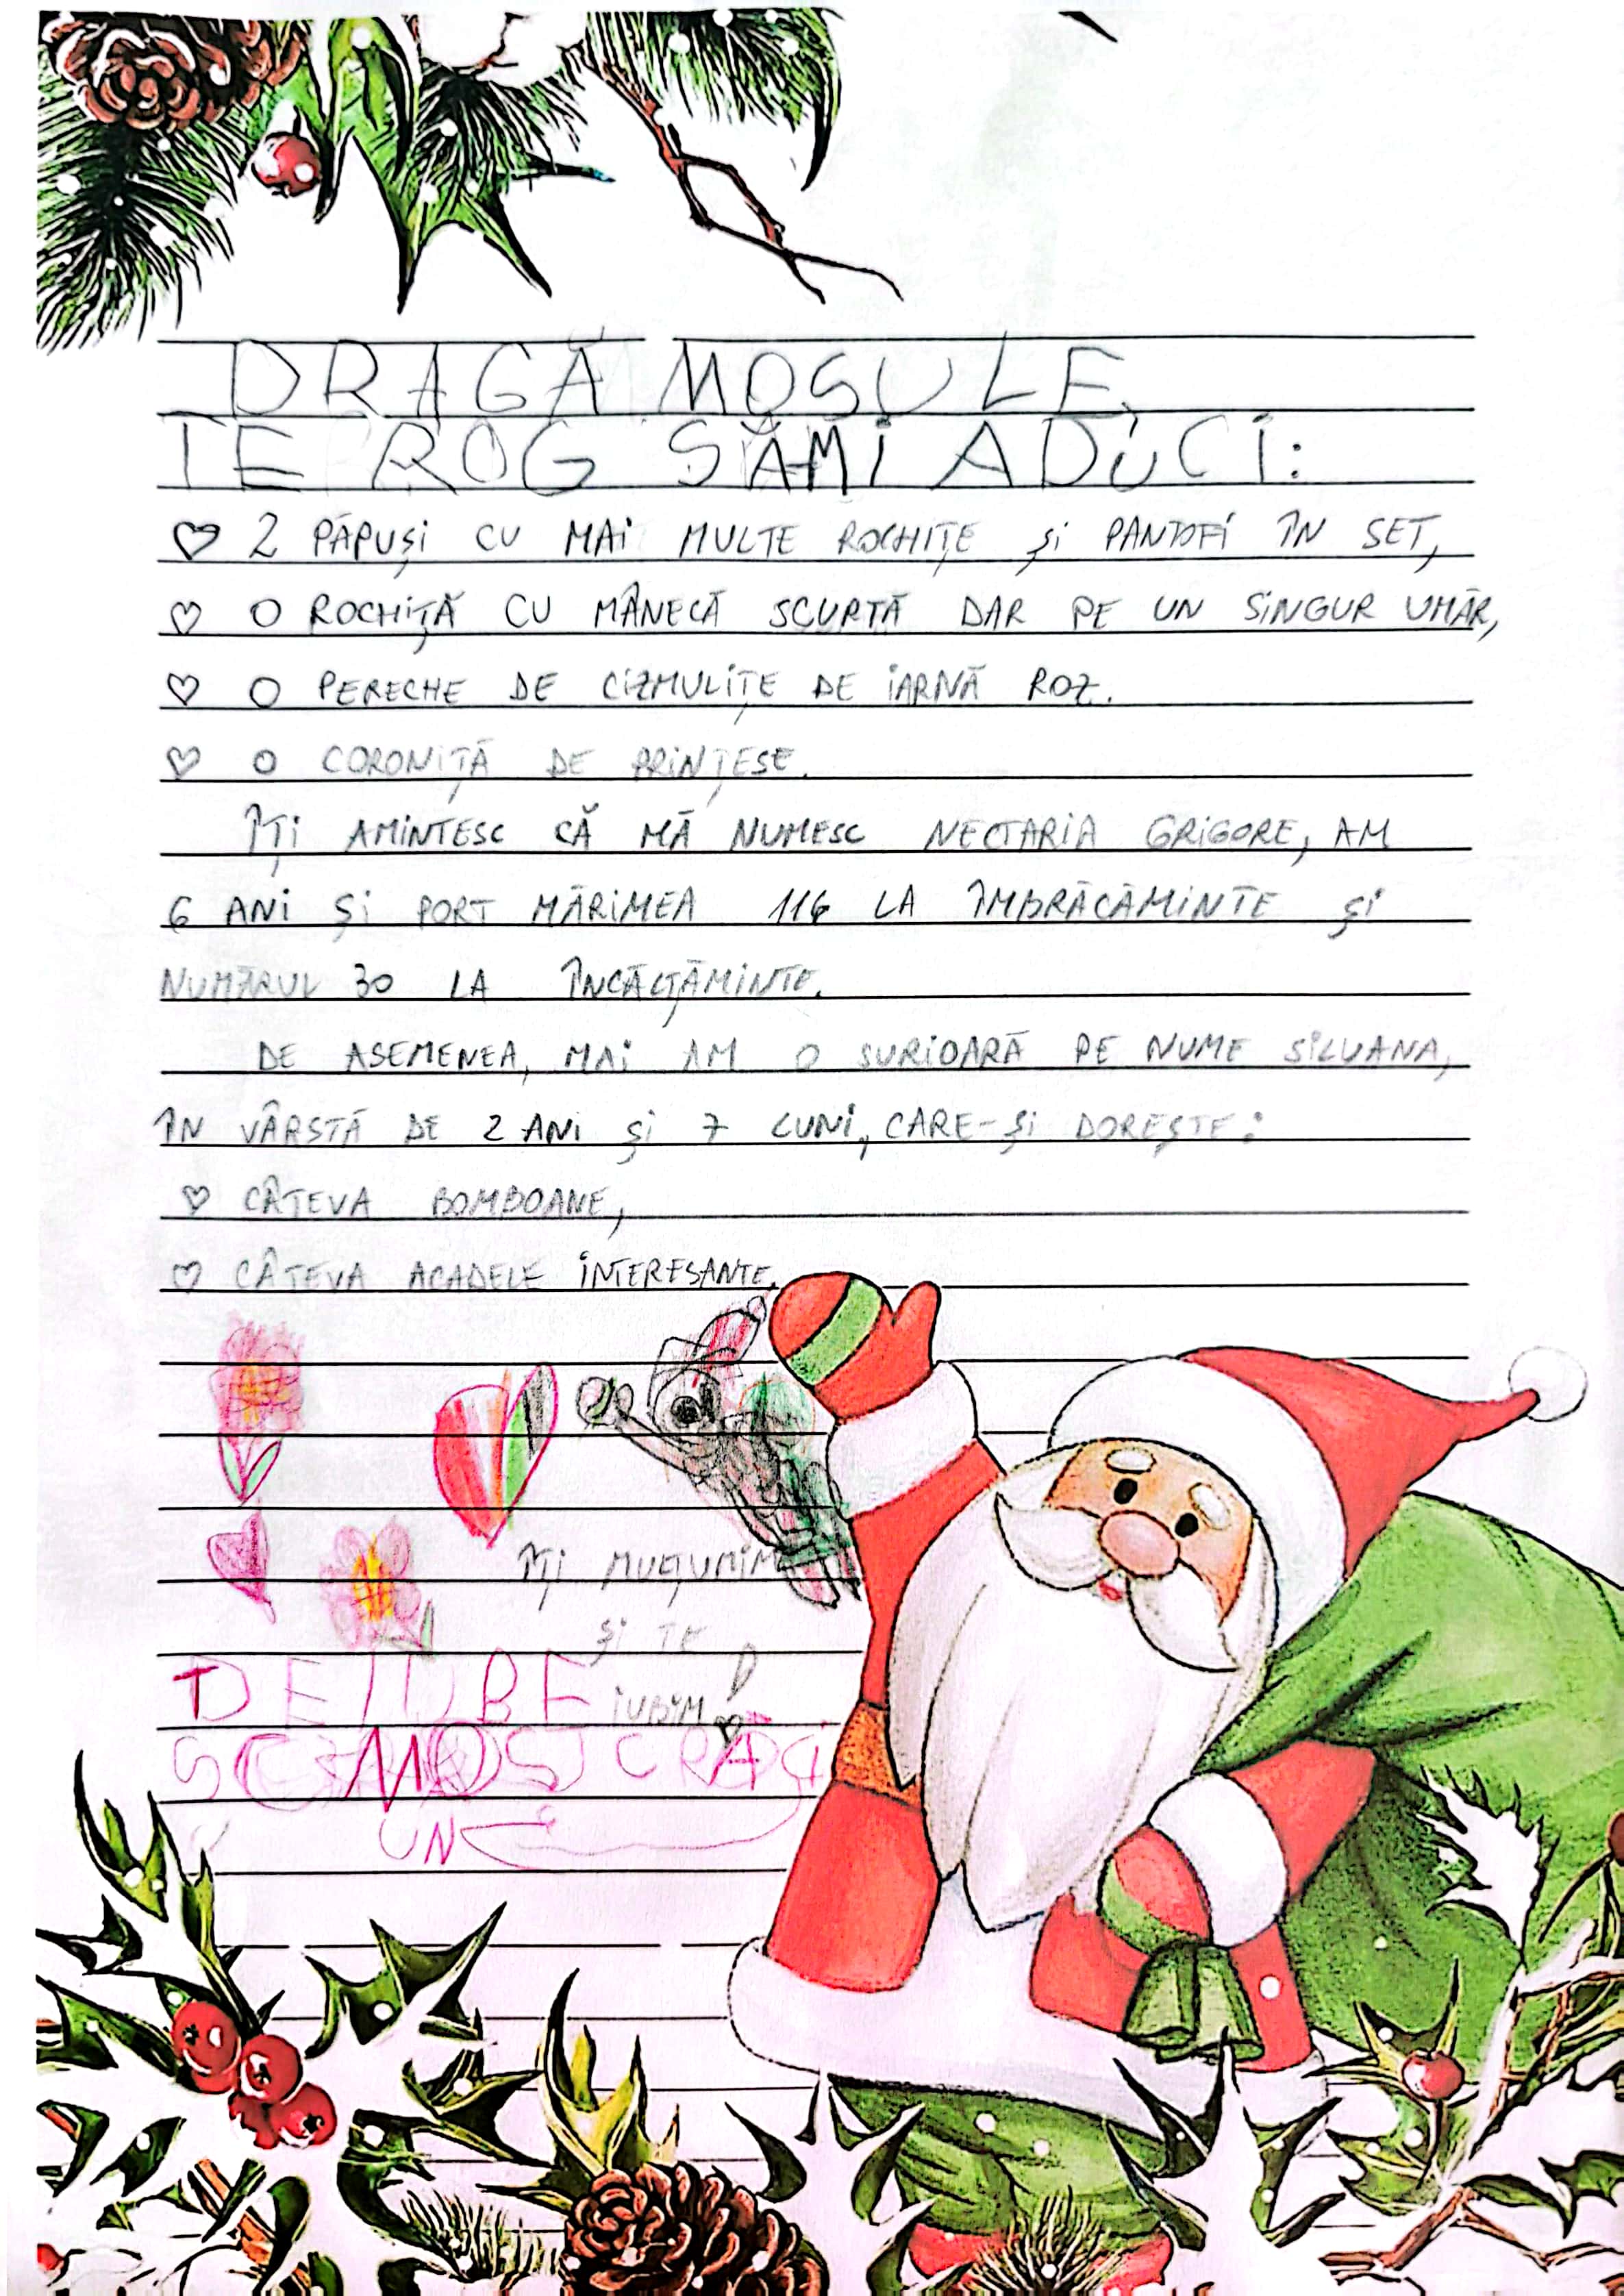 DRAGĂ MOȘULE,
TE ROG SĂMI ADUCI:
♡ 2 PĂPUȘI CU MAI MULTE ROCHIȚE ȘI PANTOFI ÎN SET,
♡ O ROCHIȚĂ CU MÂNECĂ SCURTĂ DAR PE UN SINGUR UMĂR,
♡ O PERECHE DE CIZMULIȚE DE IARNĂ ROZ.
♡ O CORONIȚĂ DE PRINȚESE.
ÎȚI AMINTESC CĂ MĂ NUMESC NECTARIA GRIGORE, AM
6 ANI ȘI PORT MĂRIMEA 116 LA ÎMBRĂCĂMINTE ȘI
NUMĂRUL 30 LA ÎNCĂLȚĂMINTE.
DE ASEMENEA, MAI AM O SURIOARĂ PE NUME SILVANA,
ÎN VÂRSTĂ DE 2 ANI ȘI 7 LUNI, CARE-ȘI DOREȘTE:
♡ CÂTEVA BOMBOANE,
♡ CÂTEVA ACADELE INTERESANTE.
ÎȚI MULȚUMIM
ȘI TE
IUBIM
MOȘ CRĂCI
UN